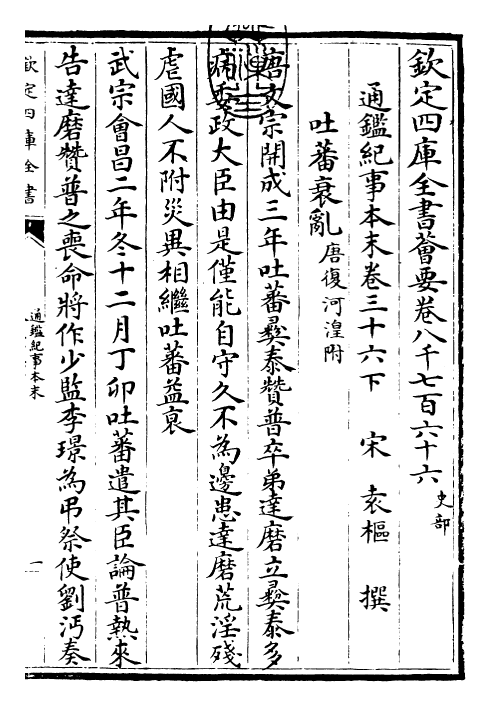 欽定四庫全書薈要卷八千七百六十六 史部
通鑑紀事本末卷三十六下 宋 袁樞 撰
吐蕃衰亂 唐復河湟附
唐文宗開成三年吐蕃彝泰贊普卒弟達磨立彝泰多
病委政大臣由是僅能自守久不為邊患達磨荒淫殘
虐國人不附災異相繼吐蕃益衰
武宗會昌二年冬十二月丁卯吐蕃遣其臣論普熱來
告達磨贊普之喪命將作少監李璟為弔祭使劉沔奏
欽定四庫全書
通鑑紀事本末
一